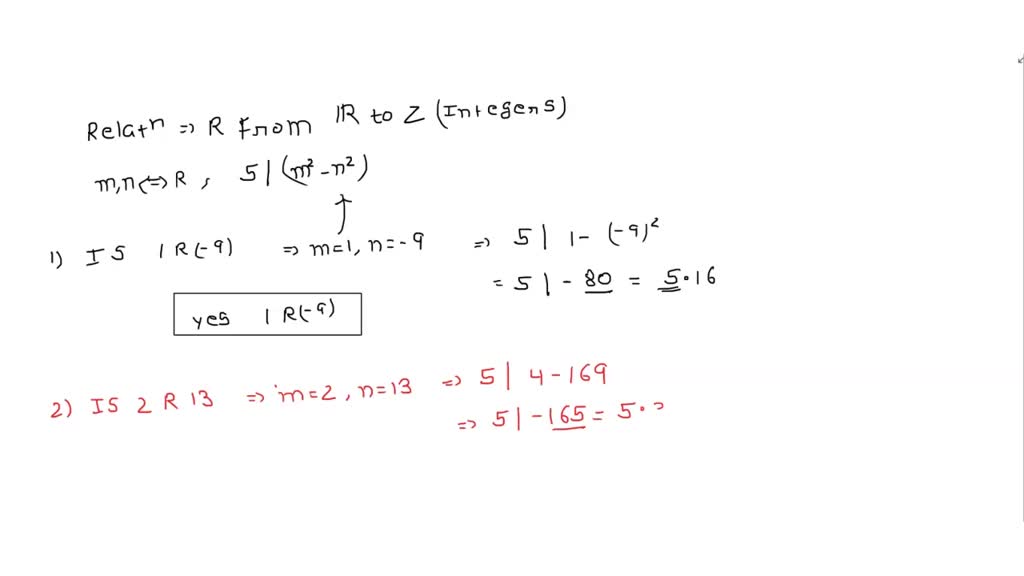 Relatⁿ => R From IR to Z (Integers)
m,n <=> R , 5 | (m² - n²)
1) IS 1 R (-9) => m=1, n=-9 => 5 | 1 - (-9)²
= 5 | - 80 = 5·16
yes 1 R (-9)
2) IS 2 R 13 => m=2, n=13 => 5 | 4 - 169
=> 5 | - 165 = 5·